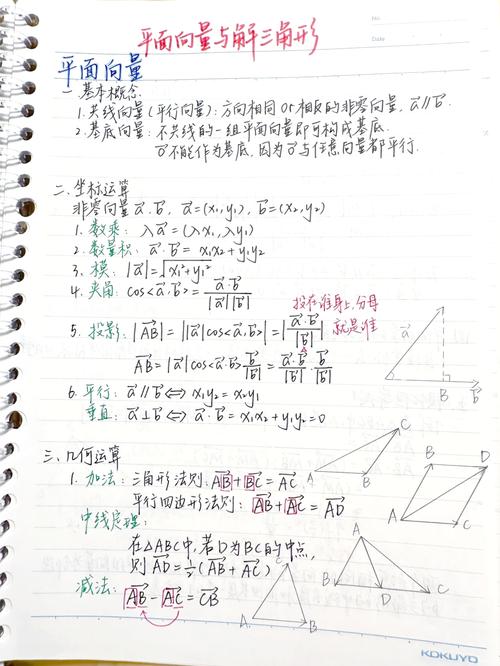 No.
Date
平面向量与解三角形
平面向量
一 基本概念
1. 共线向量(平行向量): 方向相同 or 相反的非零向量, a⃗∥b⃗.
2. 基底向量: 不共线的一组平面向量即可构成基底.
0⃗不能作为基底, 因为0⃗与任意向量都平行.
二. 坐标运算
非零向量a⃗, b⃗, a⃗=(x₁,y₁), b⃗=(x₂,y₂)
1. 数乘: λa⃗=(λx₁, λy₁)
2. 数量积. a⃗·b⃗ = x₁x₂+y₁y₂
3. 模: |a⃗|=√(x₁²+y₁²)
4. 夹角: cos<a⃗,b⃗>=a⃗·b⃗/|a⃗||b⃗|
投在谁身上,分母
就是谁
5. 投影: |AB⃗|=||a⃗|cos<a⃗,b⃗>|=|a⃗·b⃗/|b⃗||
AB⃗=|a⃗|cos<a⃗,b⃗>b⃗/|b⃗|=a⃗·b⃗/|b⃗|·b⃗/|b⃗|
a⃗
A B b⃗
6. 平行: a⃗∥b⃗⇔x₁y₂=x₂y₁
垂直: a⃗⊥b⃗⇔a⃗·b⃗=x₁x₂+y₁y₂=0
三、几何运算
1. 加法: 三角形法则: AB⃗+BC⃗=AC⃗
平行四边形法则: AB⃗+AC⃗=AD⃗
A B C
A B C D
中线定理:
在△ABC中, 若D为BC的中点,
则AD⃗=½(AB⃗+AC⃗)
A B D C
减法: AB⃗-AC⃗=CB⃗
A B C
KOKUYO